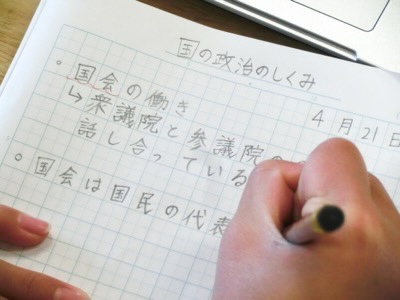 国の政治のしくみ
4月21日
。国会の働き
↳衆議院と参議院の
話し合っている
。国会は国民の代表